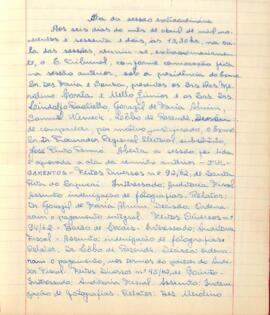 Ata da sessão extraordinária
Aos seis dias do mês de abril de mil no-
vecentos e sessenta e dois às 13,30 hs, na sa-
la das sessões, reuniu-se, extraordinariamen-
te, o E. Tribunal, conforme convocação feita
na sessão anterior, sob a presidência do Exmo
Sr. Des. Faria e Sousa, presentes os Srs. Des. Me-
rolino Corrêa, Mello Júnior e os Srs. Drs.
Lindolfo Paoliello, Gorazil de Faria Alvim,
Werneck, Lôbo de Resende. Deixou
de comparecer, por motivo justificado, o Exmo
Sr. Dr. Procurador Regional Eleitoral, substituto,
José Pinto Renna. Aberta a sessão foi lida
e aprovada a ata da reunião anterior. - JUL-
GAMENTOS - Feitos Diversos nº 92/62, de Santa
Rita do Sapucaí. Interessado: Auditoria Fiscal
Assunto: indenização de fotografias. Relator:
Dr. Gorazil de Faria Alvim. Decisão: Ordena-
ram o pagamento integral. Feitos Diversos nº
94/62 - Barão de Cocais. Interessado: Auditoria
Fiscal - Assunto: indenização de fotografias.
Relator: Dr. Lôbo de Resende. Decisão: ordena-
ram o pagamento, nos termos do parecer do Audi-
tor Fiscal. Feitos Diversos nº 45/62, de
Interessado: Auditoria Fiscal. Assunto: Indeni-
zação de fotografias. Relator: Des. Merolino